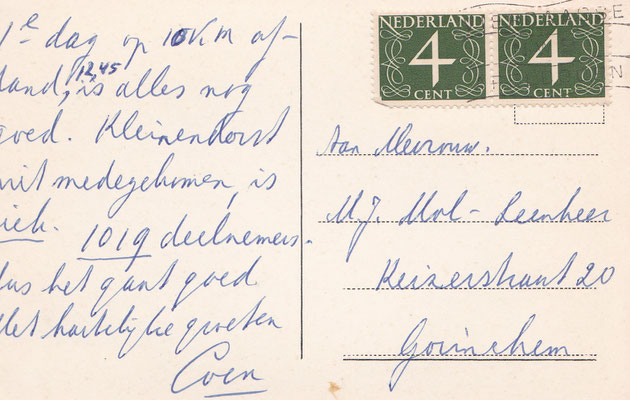 1e dag op 10 KM af-
stand, 12,45 is alles nog
goed. Kleinendorst
niet medegekomen, is
ziek. 1019 deelnemers.
dus het gaat goed
Met hartelijke groeten
Coen
NEDERLAND
4
CENT
NEDERLAND
4
CENT
Aan Mevrouw.
M.J. Mol - Leenheer
Keizerstraat 20
Gorinchem